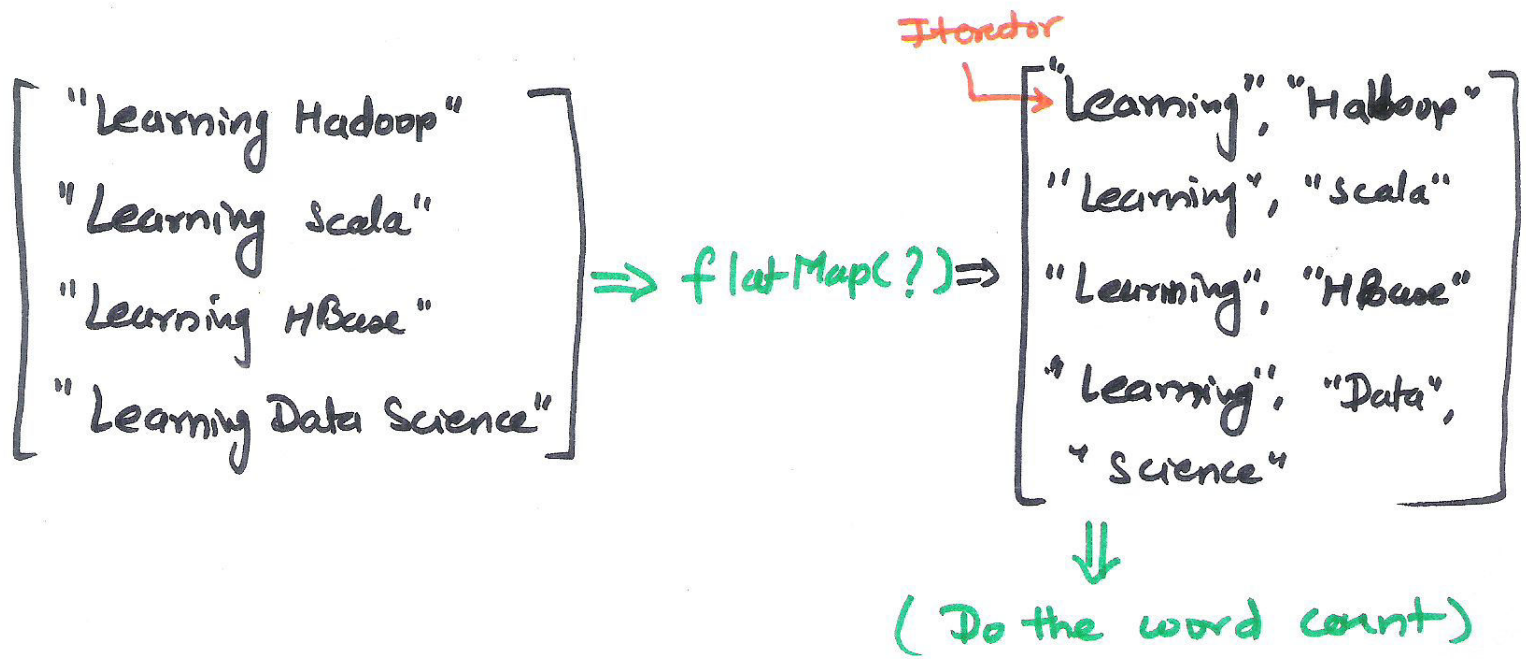 "Learning Hadoop"
"Learning Scala"
"Learning HBase"
"Learning Data Science"
⇒ flatMap(?) ⇒
Iterator
"Learning", "Hadoop"
"Learning", "Scala"
"Learning", "HBase"
"Learning", "Data",
"Science"
(Do the word count)